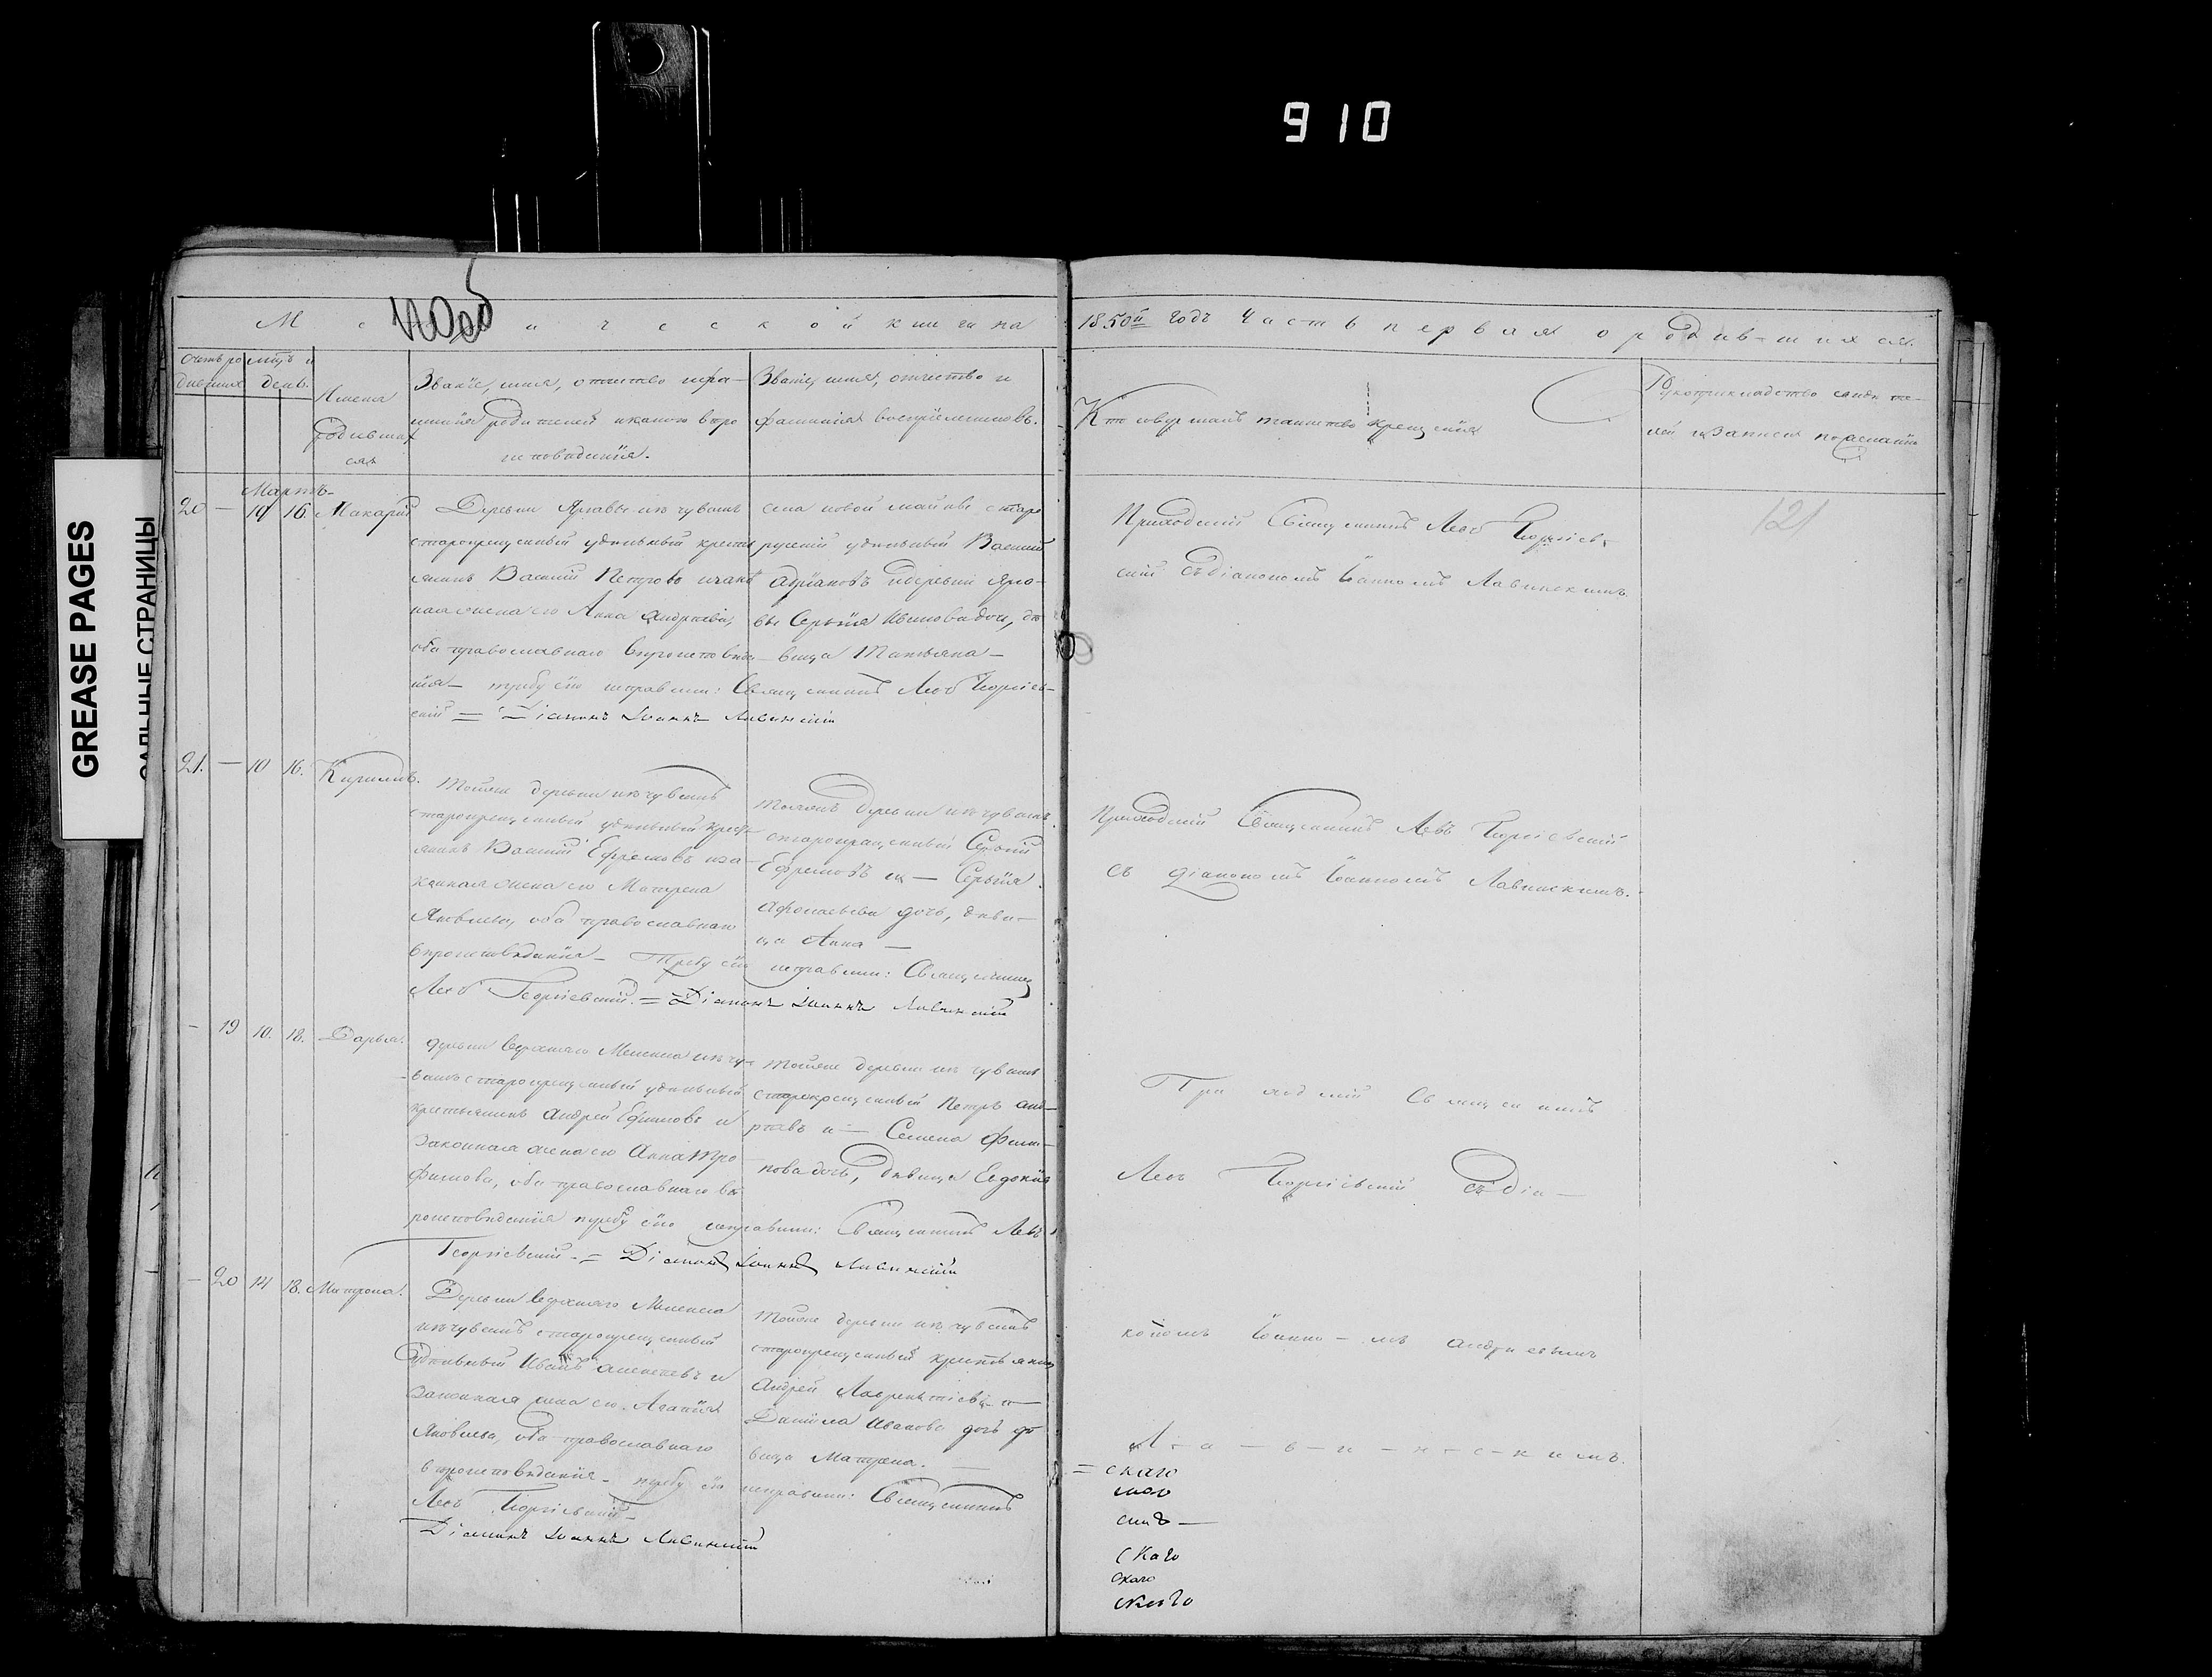 910
GREASE PAGES
САЛЬНЫЕ СТРАНИЦЫ
М е т р и ч е с к о й книги на
1850й годъ Часть первая о родив-шихся.
Счетъ ро мцъ и
дившихся день.
Имена
родивших
ся
Званіе, имя, отчество и фа-
милія родителей и какого веро
исповѣданія.
Званіе, имя, отчество и
фамилія воспріемниковъ.
Кто совершалъ таинство крещенія
Рукоприкладство свидѣте-
лей о записи по желанію
121
Мартъ
20 — 10 16. Макарій
Деревни изъ чувашъ
старокрещенный удѣльный крестья
янинъ Василій Петровъ и
жена его Анна Андреева,
оба православнаго вѣроисповѣда-
нія — требу сію исправили: Священникъ Левъ Георгіев-
скій = Діаконъ Іоаннъ Лавинскій
села новой майны
удѣльный Василій
Адріановъ и деревни
вы Сергѣя Иванова дочь, дѣ
вица Татьяна —
Приходскій Священникъ Левъ Георгіев-
скій съ діакономъ Іоанномъ Лавинскимъ.
21. — 10 16. Кириллъ.
Тойже деревни изъ чувашъ
старокрещенный удѣльный кресть
янинъ Василій Ефремовъ и за
конная жена его Матрена
Яковлева, оба православнаго
вѣроисповѣданія — Требу сію исправили: Священникъ
Левъ Георгіевскій. = Діаконъ Іоаннъ Лавинскій
Тойже деревни изъ чувашъ
старокрещенный Сергѣй
Ефремовъ и — Сергѣя
Афонасьева дочь, дѣви-
ца Анна —
Приходскій Священникъ Левъ Георгіевскій
съ діакономъ Іоанномъ Лавинскимъ.
— 19 10. 18. Дарья.
деревни верхняго изъ чу-
вашъ старокрещенный удѣльный
крестьянинъ Андрей Ефимовъ и
законная жена его Анна Тро
фимова, оба православнаго вѣ
роисповѣданія требу сію исправили: Священникъ Левъ
Георгіевскій — = Діаконъ Іоаннъ Лавинскій
Тойже деревни изъ чувашъ
старокрещенный Петръ Анд-
реевъ и — Семена Филип-
пова дочь, дѣвица Евдокія
При ход скій Св ящ ен никъ
Левъ Георгіевскій съ діа —
— 20 14 18. Матрена.
Деревни верхняго
изъ чувашъ старокрещенный
удѣльный Иванъ Алексѣевъ и
законная жена его Агапія
Яковлева, оба православнаго
вѣроисповѣданія — требу сію исправили: Священникъ
Левъ Георгіевскій —
Діаконъ Іоаннъ Лавинскій
Тойже деревни изъ чувашъ
старокрещенный крестьянинъ
Андрей Лаврентіевъ и —
Даніила Иванова дочь дѣ
вица Матрена. —
кономъ Іоанно — мъ Андреевымъ
Л — а — в — и — н — с — к и мъ.
= скаго
скаго
скаго
скаго